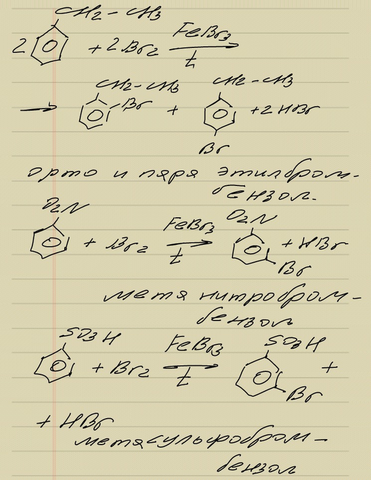 CH2-CH3
2 + 2Br2 FeBr3 t
CH2-CH3 Br + CH2-CH3 Br + 2HBr
орто и пара этилбром-
бензол.
O2N + Br2 FeBr3 t O2N Br + HBr
мета нитробром-
бензол
SO3H + Br2 FeBr3 t SO3H Br +
+ HBr
метасульфобром-
бензол